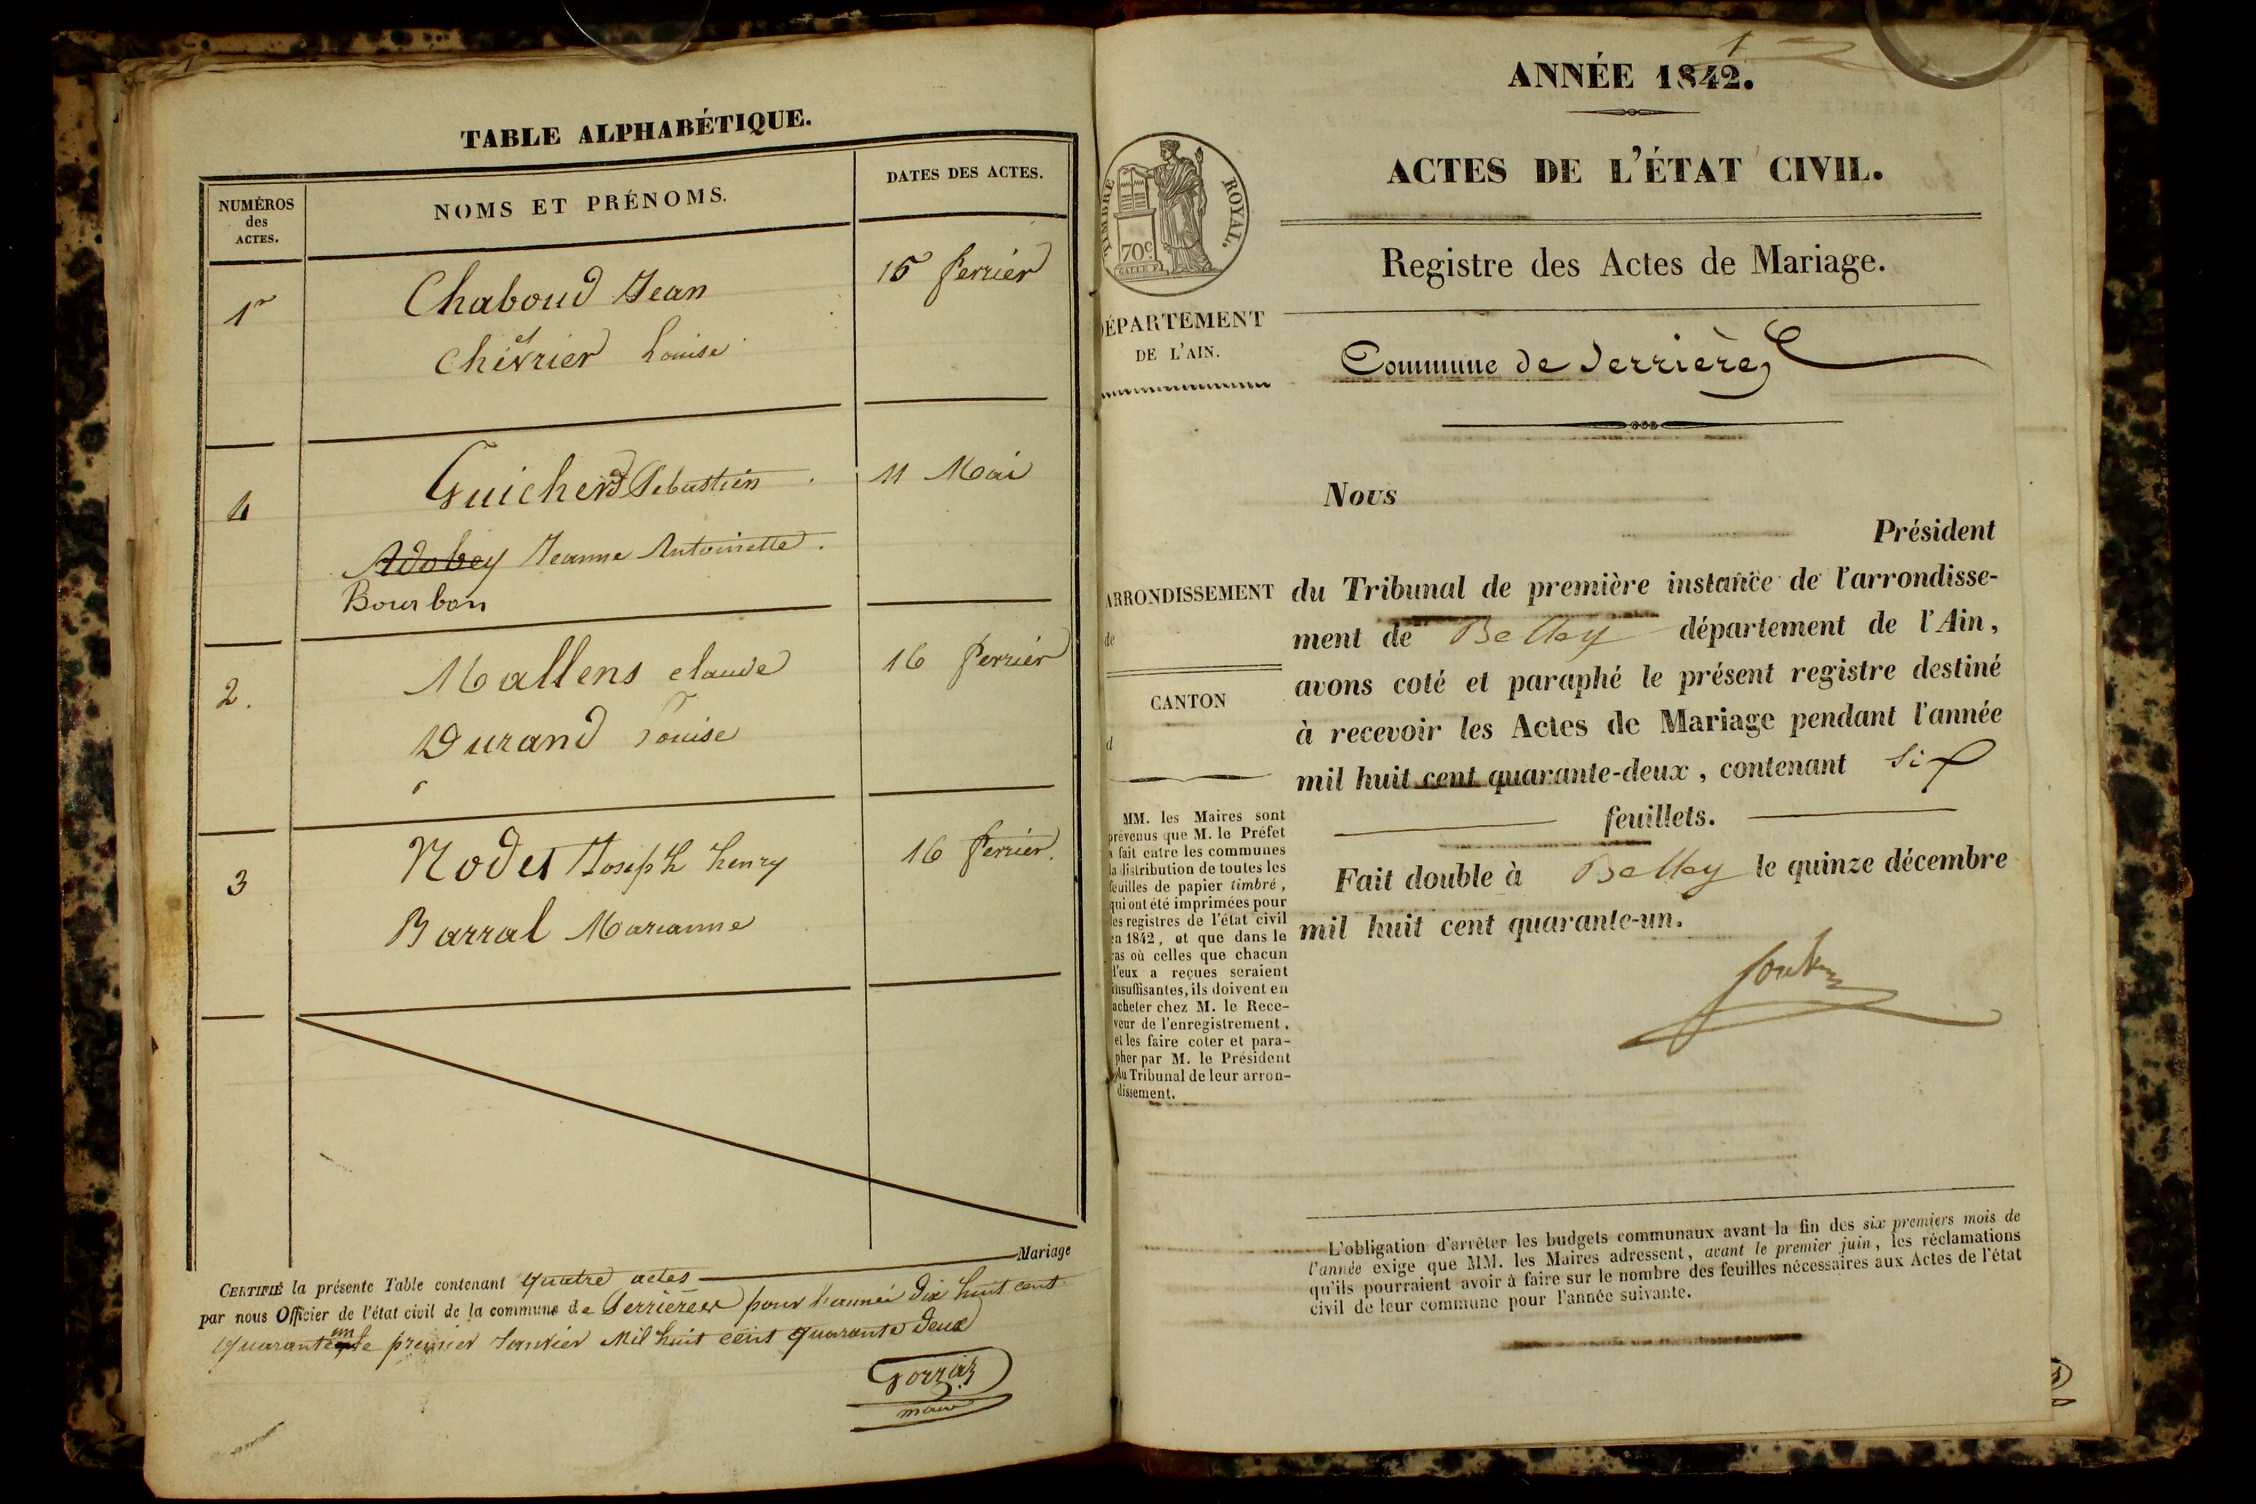 TABLE ALPHABÉTIQUE.
NUMÉROS des ACTES.
NOMS ET PRÉNOMS.
DATES DES ACTES.
1r
Chaboud Jean
15 fevrier
et
Chevrier Louise
4
Guicherd Sebastien
11 Mai
Adobey Jeanne Antoinette.
Bourbon
2.
Mallens claude
16 fevrier
Durand Louise
3
Nodet Joseph henry
16 fevrier.
Barral Marianne
Mariage
CERTIFIÉ la présente Table contenant quatre actes
par nous Officier de l'état civil de la commune de Serrières pour l'année dix huit cent
quarante un le premier Janvier Mil huit cent quarante deux
Gorraz
maire
1
ANNÉE 1842.
ACTES DE L'ÉTAT CIVIL.
TIMBRE ROYAL.
70c
Registre des Actes de Mariage.
DÉPARTEMENT
DE L'AIN.
Commune de Serrières
Nous
Président
ARRONDISSEMENT
de
du Tribunal de première instance de l'arrondisse-
ment de Belley département de l'Ain,
avons coté et paraphé le présent registre destiné
CANTON
d
à recevoir les Actes de Mariage pendant l'année
mil huit cent quarante-deux, contenant six
feuillets.
Fait double à Belley le quinze décembre
mil huit cent quarante-un.
MM. les Maires sont
prévenus que M. le Préfet
a fait entre les communes
la distribution de toutes les
feuilles de papier timbré,
qui ont été imprimées pour
les registres de l'état civil
en 1842, et que dans le
cas où celles que chacun
d'eux a reçues seraient
insuffisantes, ils doivent en
acheter chez M. le Rece-
veur de l'enregistrement,
et les faire coter et para-
pher par M. le Président
du Tribunal de leur arron-
dissement.
L'obligation d'arrêter les budgets communaux avant la fin des six premiers mois de
l'année exige que MM. les Maires adressent, avant le premier juin, les réclamations
qu'ils pourraient avoir à faire sur le nombre des feuilles nécessaires aux Actes de l'état
civil de leur commune pour l'année suivante.